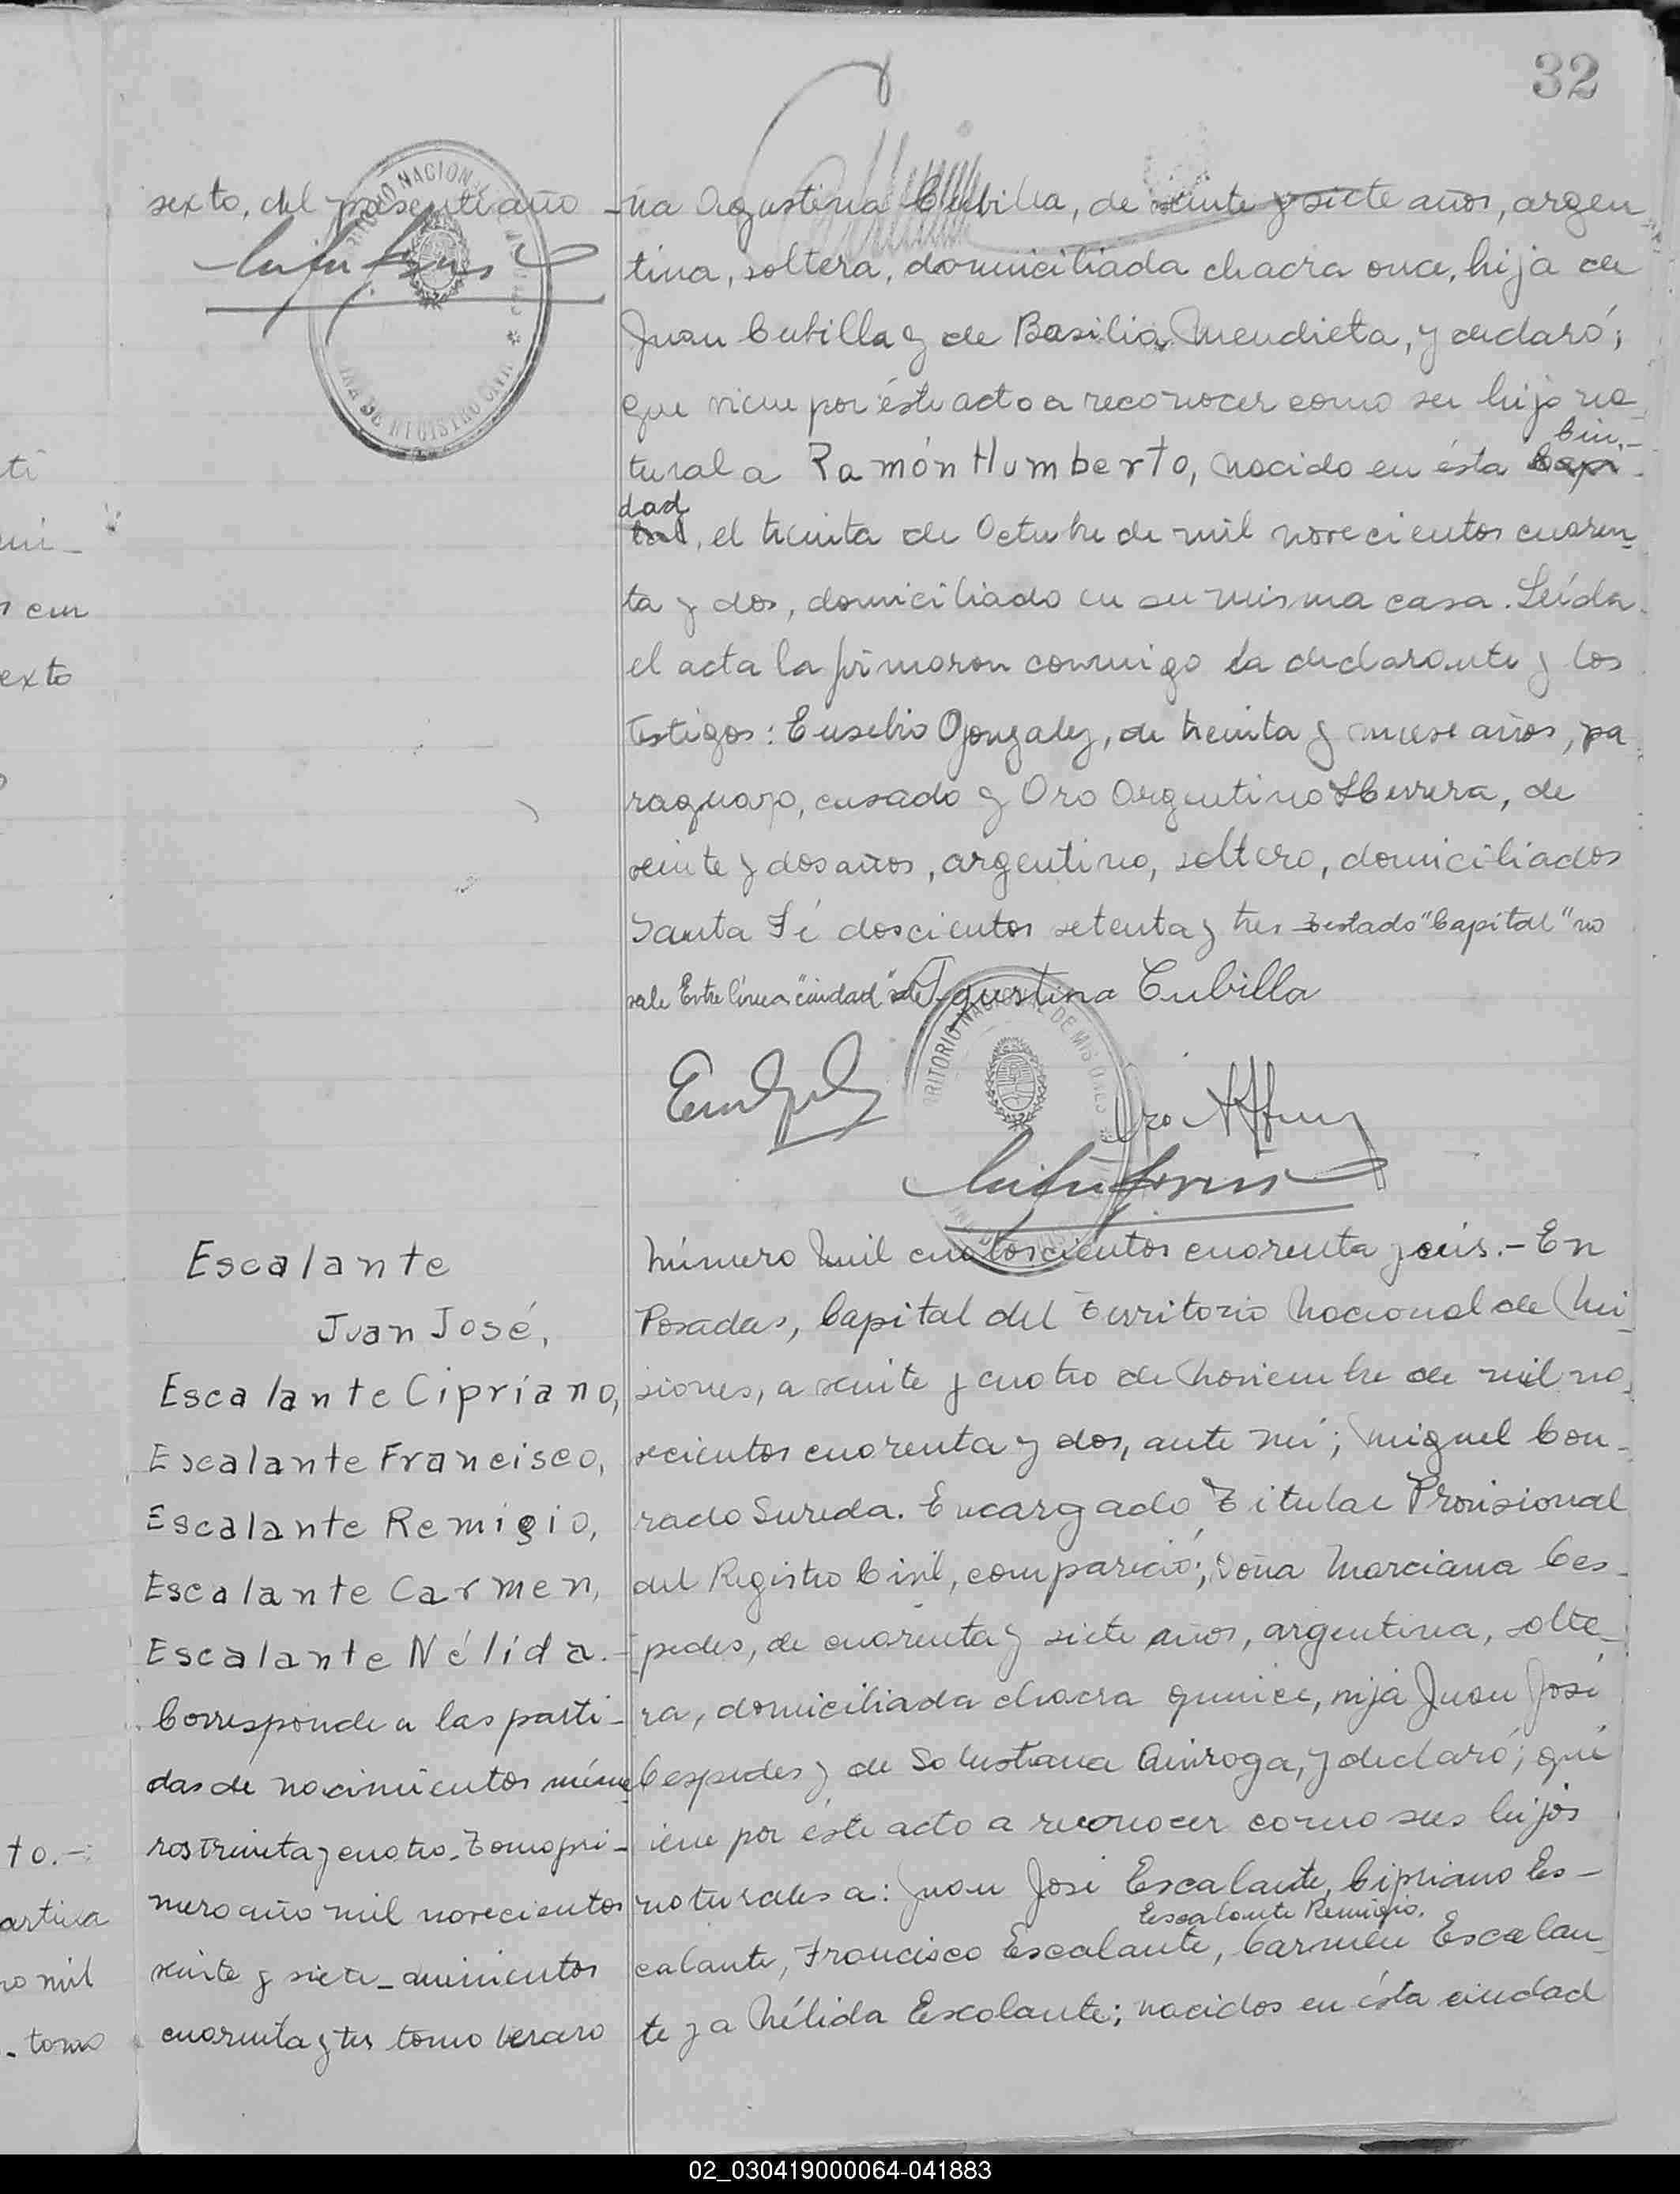 32
sexto, del presente año
ña Agustina Cubilla, de veinte y siete años, argen
tina, soltera, domiciliada chacra once, hija de
Juan Cubilla y de Basilia Mendieta, y declaró;
que viene por éste acto a reconocer como su hijo na-
ciu.-
tural a Ramón Humberto, nacido en ésta Capi-
dad
tal, el treinta de Octubre de mil novecientos cuaren-
ta y dos, domiciliado en su misma casa. Leída
el acta la firmaron conmigo la declarante y los
testigos: Eusebio Gonzalez, de treinta y nueve años, pa
raguayo, casado y Oro Argentino Herrera, de
veinte y dos años, argentino, soltero, domiciliados
Santa Fé doscientos setenta y tres Testado "Capital" no
vale Entre línea "ciudad" vale Agustina Cubilla
TERRITORIO NACIONAL DE MISIONES
Escalante
Juan José,
Escalante Cipriano,
Escalante Francisco,
Escalante Remigio,
Escalante Carmen,
Escalante Nélida.-
Corresponde a las parti-
das de nacimientos núme
ros treinta y cuatro. Tomo pri-
mero año mil novecientos
veinte y siete - quinientos
cuarenta y tres tomo
Número mil cuatoscientos cuarenta y seis.- En
Posadas, Capital del Territorio Nacional de Mi-
siones, a veinte y cuatro de Noviembre de mil no-
vecientos cuarenta y dos, ante mí; Miguel Con-
rado Sureda. Encargado Titular Provisional
del Registro Civil, compareció; Doña Marciana Ces-
pedes, de cuarenta y siete años, argentina, solte-
ra, domiciliada chacra quince, hija Juan José
Cespedes y de Salustiana Quiroga, y declaró; que
iene por éste acto a reconocer como sus hijos
naturales a: Juan José Escalante, Cipriano Es-
Escalante Remigio.
calante, Francisco Escalante, Carmen Escalan-
te y a Nélida Escalante; nacidos en ésta ciudad
ti
mi-
s en
exto
to.-
artina
ro mil
- tomo
02_030419000064-041883